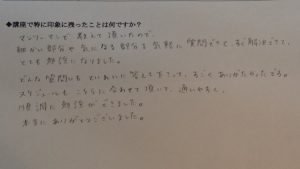 ◆講座で特に印象に残ったことは何ですか？
マンツーマンで教えて頂いたので、
細かい部分や気になる部分を気軽に質問できて、すぐ解決できて、
とても勉強になりました。
どんな質問にもていねいに答えて下さって、すごくありがたかったです。
スケジュールもこちらに合わせて頂いて、通いやすく、
順調に勉強ができました。
本当にありがとうございました。